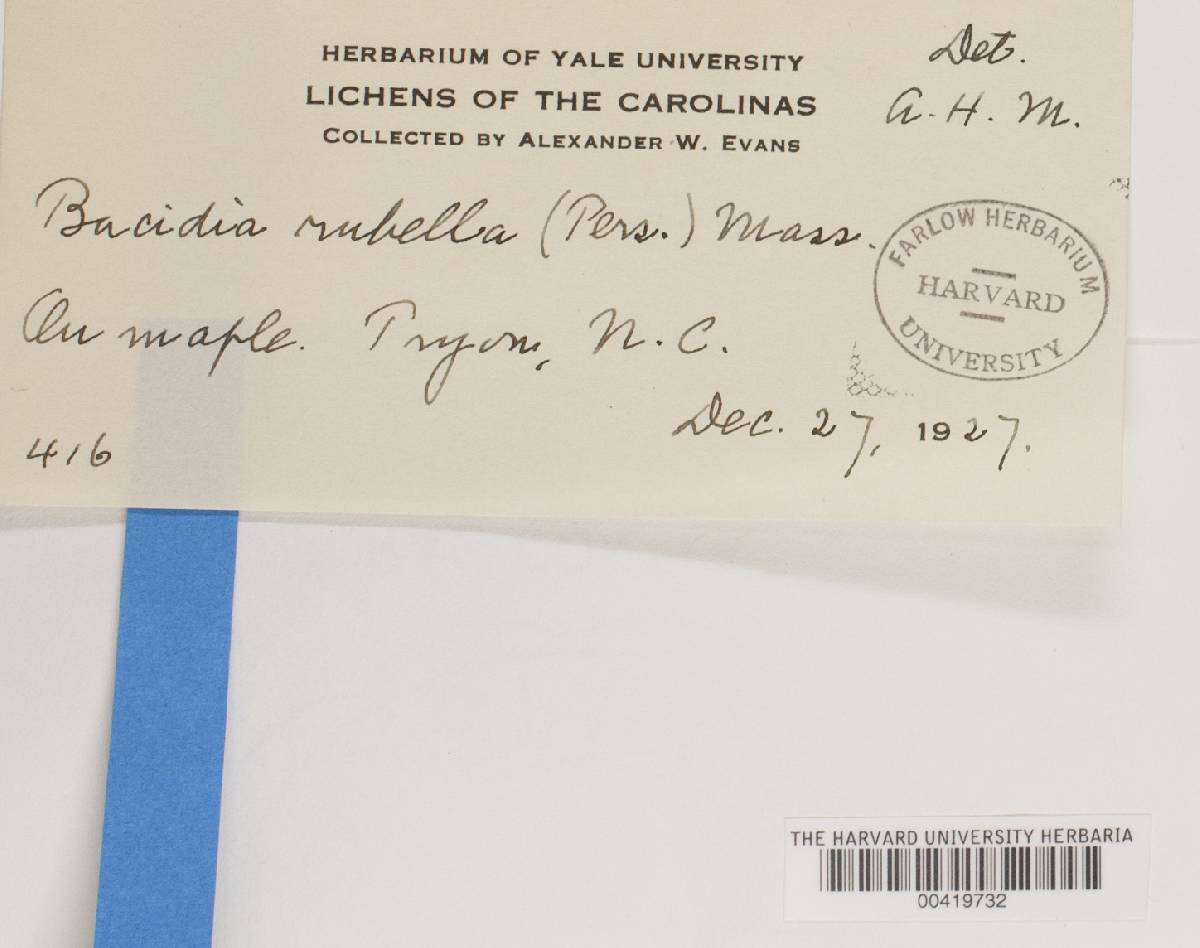 HERBARIUM OF YALE UNIVERSITY
LICHENS OF THE CAROLINAS
COLLECTED BY ALEXANDER W. EVANS
Det.
A. H. M.
Bacidia rubella (Pers.) Mass.
On maple. Tryon, N. C.
Dec. 27, 1927.
416
FARLOW HERBARIUM
HARVARD
UNIVERSITY
THE HARVARD UNIVERSITY HERBARIA
00419732